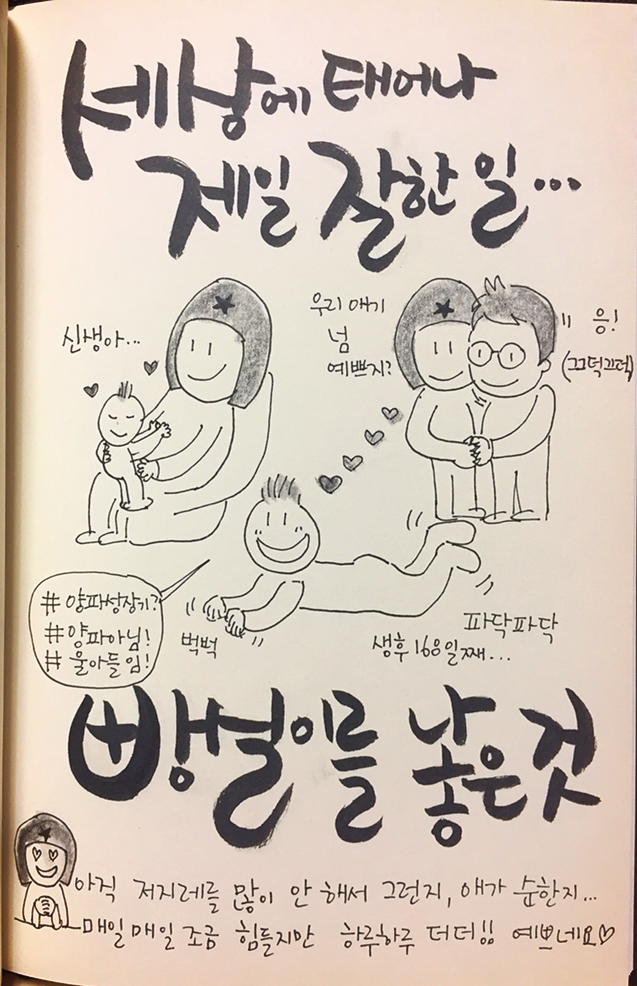 세상에 태어나
제일 잘한 일...
신생아...
우리 애기
넘
예쁘지?
응!
(끄덕끄덕)
# 양파성장기?
# 양파아님!
# 울아들임!
벅벅
파닥파닥
생후 168일째...
빵얼이를 낳은 것
아직 저지레를 많이 안 해서 그런지, 애가 순한지...
매일매일 조금 힘들지만 하루하루 더더!! 예쁘네요♡